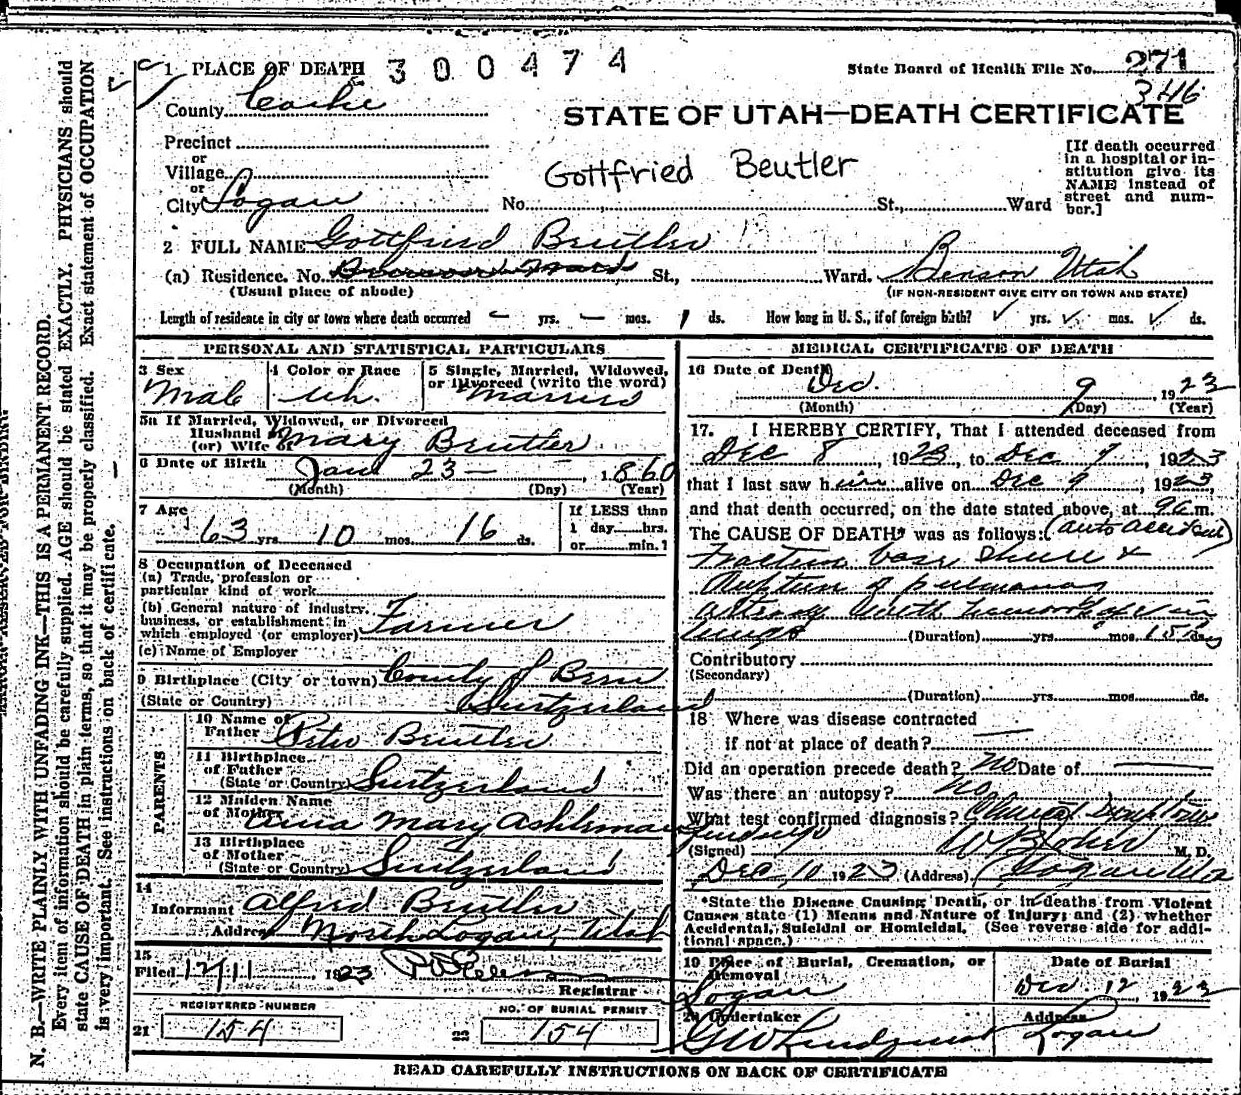 1 PLACE OF DEATH 300474
State Board of Health File No. 271
346
County Cache
STATE OF UTAH—DEATH CERTIFICATE
Precinct
or
Village
or
City Logan No. St., Ward
Gottfried Beutler
[If death occurred in a hospital or institution give its NAME instead of street and number.]
2 FULL NAME Gottfried Beutler
(a) Residence. No. St., Ward. Benson Utah
(Usual place of abode) (IF NON-RESIDENT GIVE CITY OR TOWN AND STATE)
Length of residence in city or town where death occurred — yrs. — mos. 1 ds. How long in U. S., if of foreign birth? ✓ yrs. ✓ mos. ✓ ds.
PERSONAL AND STATISTICAL PARTICULARS
3 Sex
Male
4 Color or Race
wh.
5 Single, Married, Widowed, or Divorced (write the word)
Married
5a If Married, Widowed, or Divorced
Husband of
(or) Wife of
Mary Beutler
6 Date of Birth Jan 23 — , 1860
(Month) (Day) (Year)
7 Age
63 yrs. 10 mos. 16 ds.
If LESS than
1 day hrs.
or min.?
8 Occupation of Deceased
(a) Trade, profession or
particular kind of work
(b) General nature of industry,
business, or establishment in
which employed (or employer) Farmer
(c) Name of Employer
9 Birthplace (City or town) County of Bern
(State or Country) Switzerland
PARENTS
10 Name of
Father Peter Beutler
11 Birthplace
of Father
(State or Country) Switzerland
12 Maiden Name
of Mother Mary Ashliman
13 Birthplace
of Mother
(State or Country) Switzerland
14
Informant Alfred Beutler
Address North Logan, Utah
15
Filed 12/11 1923
Registrar
REGISTERED NUMBER
21 154
NO. OF BURIAL PERMIT
22 154
MEDICAL CERTIFICATE OF DEATH
16 Date of Death
Dec. 9 , 1923
(Month) (Day) (Year)
17. I HEREBY CERTIFY, That I attended deceased from
Dec 8 , 1923, to Dec 9 , 1923
that I last saw him alive on Dec 9 , 1923,
and that death occurred, on the date stated above, at 9 a.m.
The CAUSE OF DEATH* was as follows: (auto accident)
Fracture base skull &
Rupture of pulmonary
artery with hemorrhage in
lungs (Duration) yrs. mos. ds.
Contributory
(Secondary)
(Duration) yrs. mos. ds.
18 Where was disease contracted
if not at place of death?
Did an operation precede death? No Date of
Was there an autopsy? No
What test confirmed diagnosis? Clinical
findings
(Signed) M. D.
Dec 10 1923 (Address) Logan Uta
*State the Disease Causing Death, or in deaths from Violent
Causes state (1) Means and Nature of Injury; and (2) whether
Accidental, Suicidal or Homicidal. (See reverse side for additional space.)
19 Place of Burial, Cremation, or
Removal
Logan
Date of Burial
Dec. 12 , 1923
20 Undertaker
G W Lindquist
Address
Logan
READ CAREFULLY INSTRUCTIONS ON BACK OF CERTIFICATE
N. B.—WRITE PLAINLY WITH UNFADING INK—THIS IS A PERMANENT RECORD.
Every item of information should be carefully supplied. AGE should be stated EXACTLY. PHYSICIANS should
state CAUSE OF DEATH in plain terms, so that it may be properly classified. Exact statement of OCCUPATION
is very important. See instructions on back of certificate.